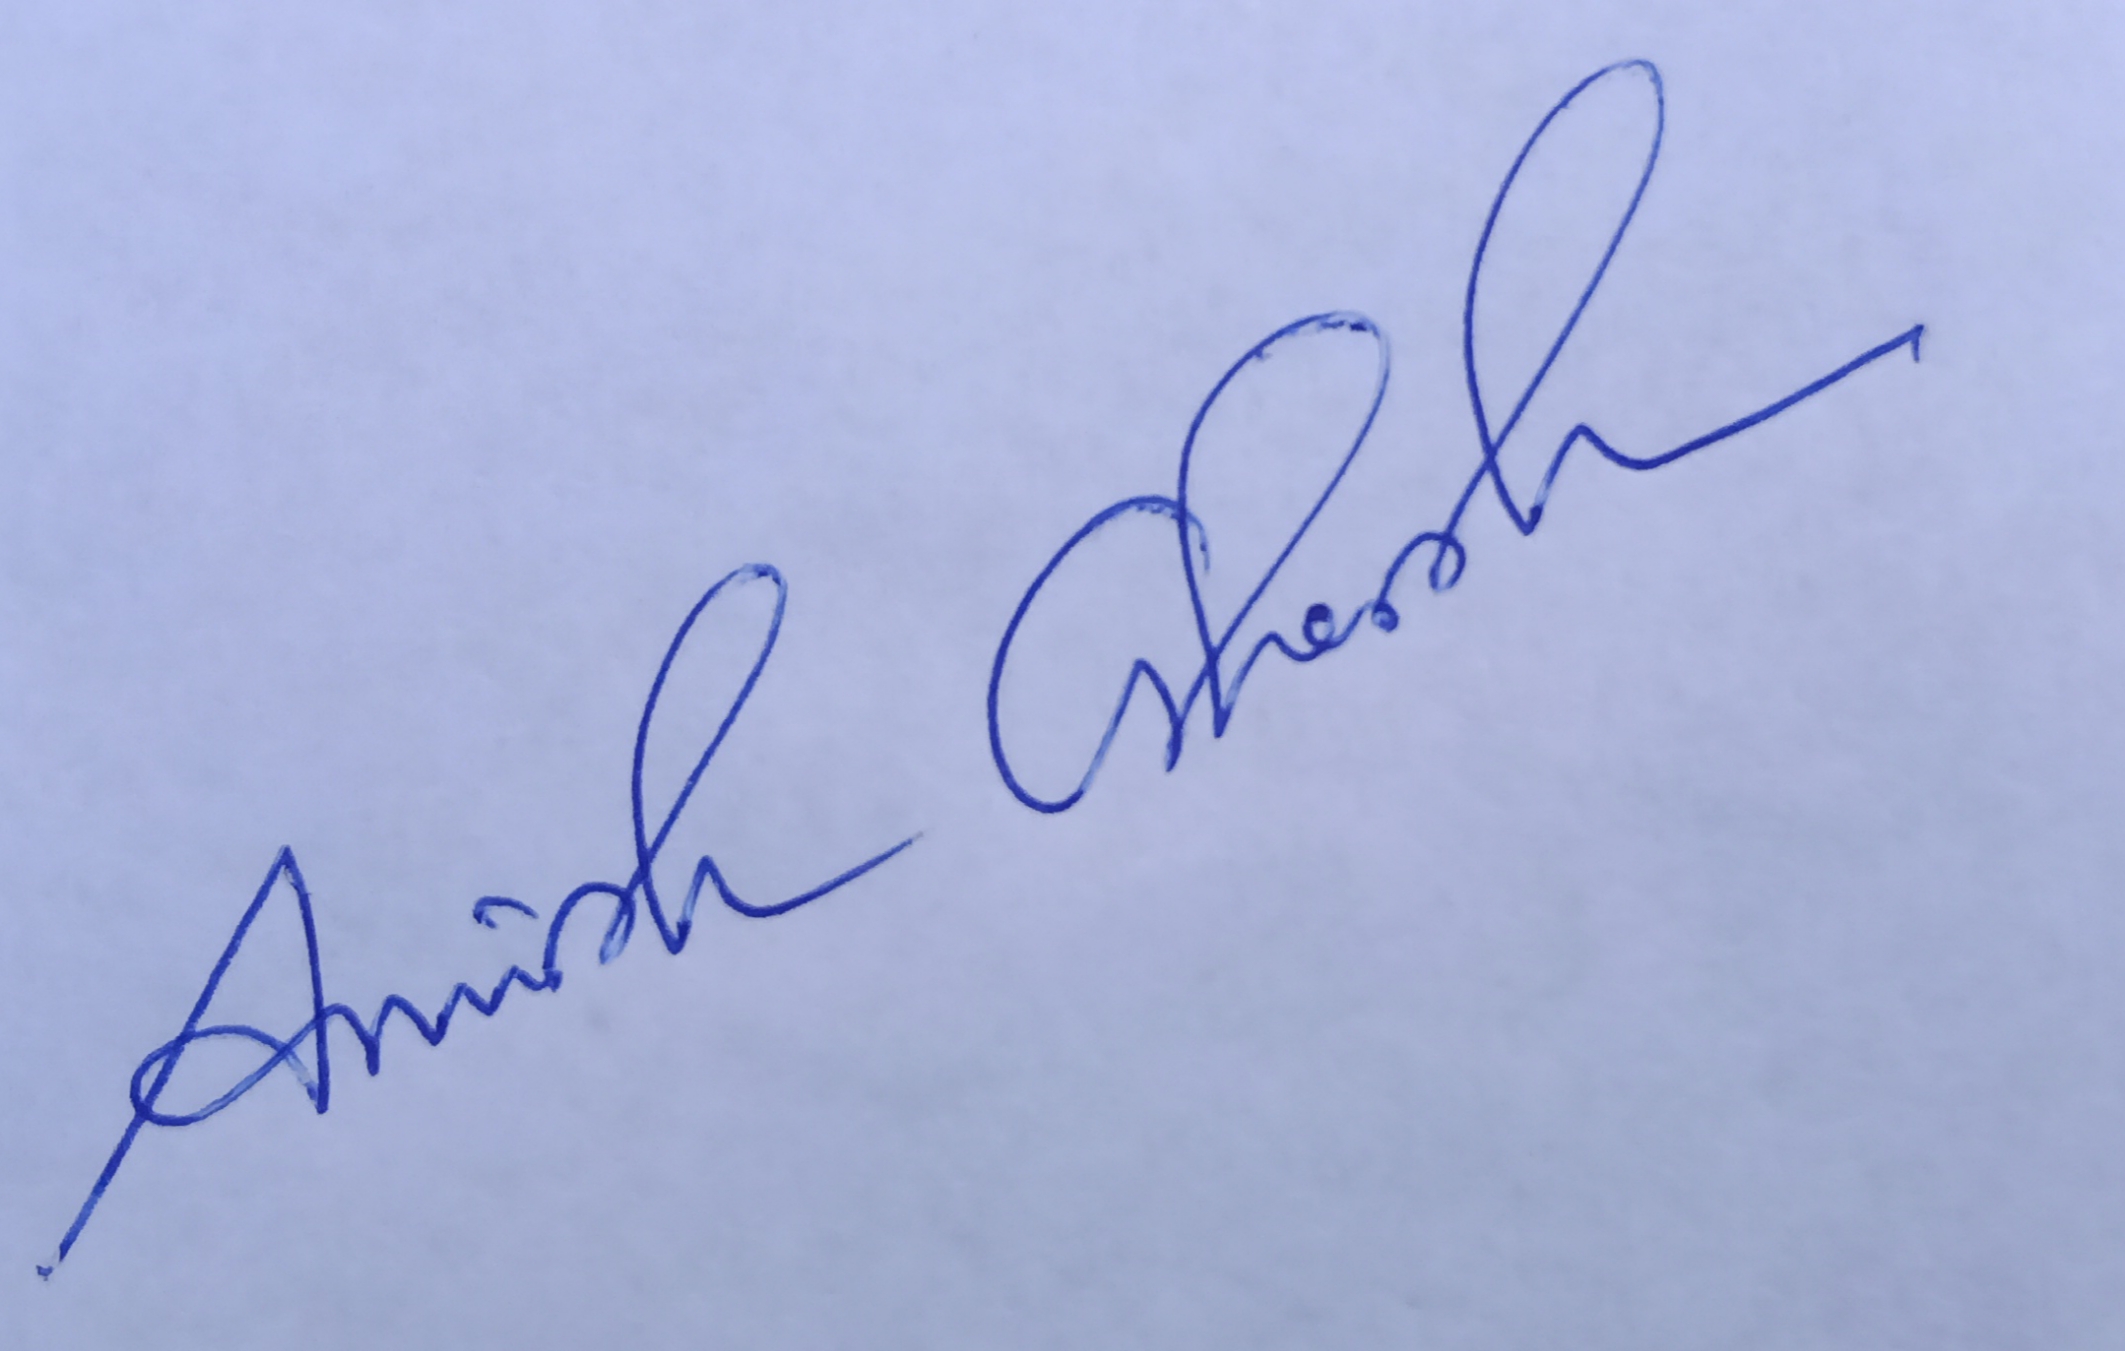 Anish Ghosh